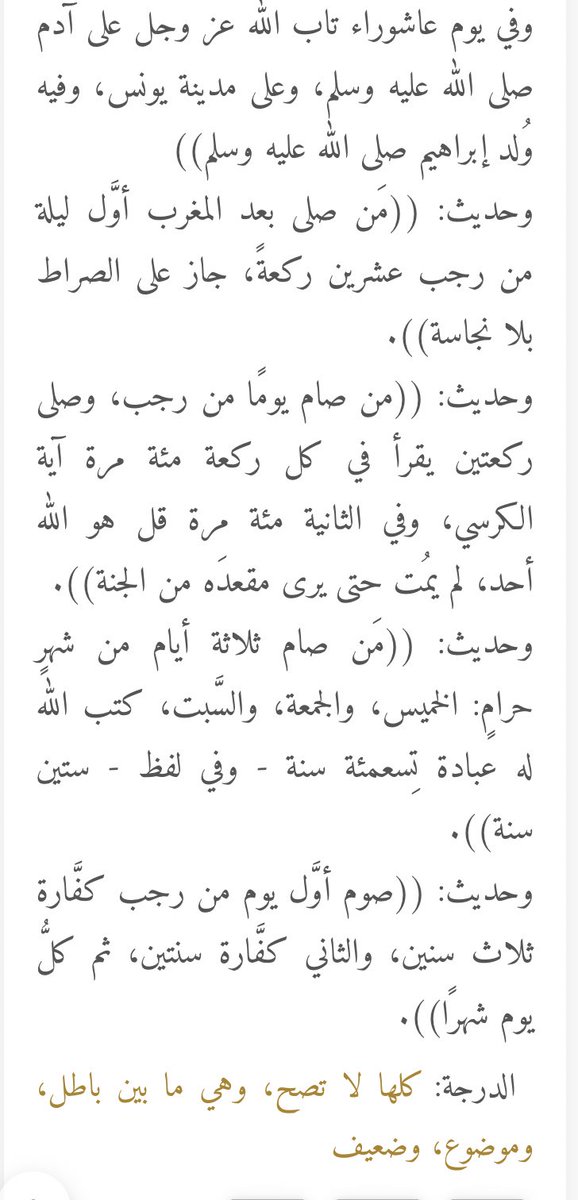 وفي يوم عاشوراء تاب الله عز وجل على آدم
صلى الله عليه وسلم، وعلى مدينة يونس، وفيه
وُلد إبراهيم صلى الله عليه وسلم))
وحديث: ((مَن صلى بعد المغرب أوَّل ليلة
من رجب عشرين ركعةً، جاز على الصراط
بلا نجاسة)).
وحديث: ((من صام يومًا من رجب، وصلى
ركعتين يقرأ في كل ركعة مئة مرة آية
الكرسي، وفي الثانية مئة مرة قل هو الله
أحد، لم يمُت حتى يرى مقعدَه من الجنة)).
وحديث: ((مَن صام ثلاثة أيام من شهرٍ
حرامٍ: الخميس، والجمعة، والسَّبت، كتب الله
له عبادة تِسعمئة سنة - وفي لفظ - ستين
سنة)).
وحديث: ((صوم أوَّل يوم من رجب كفَّارة
ثلاث سنين، والثاني كفَّارة سنتين، ثم كلُّ
يوم شهرًا)).
الدرجة: كلها لا تصح، وهي ما بين باطل،
وموضوع، وضعيف